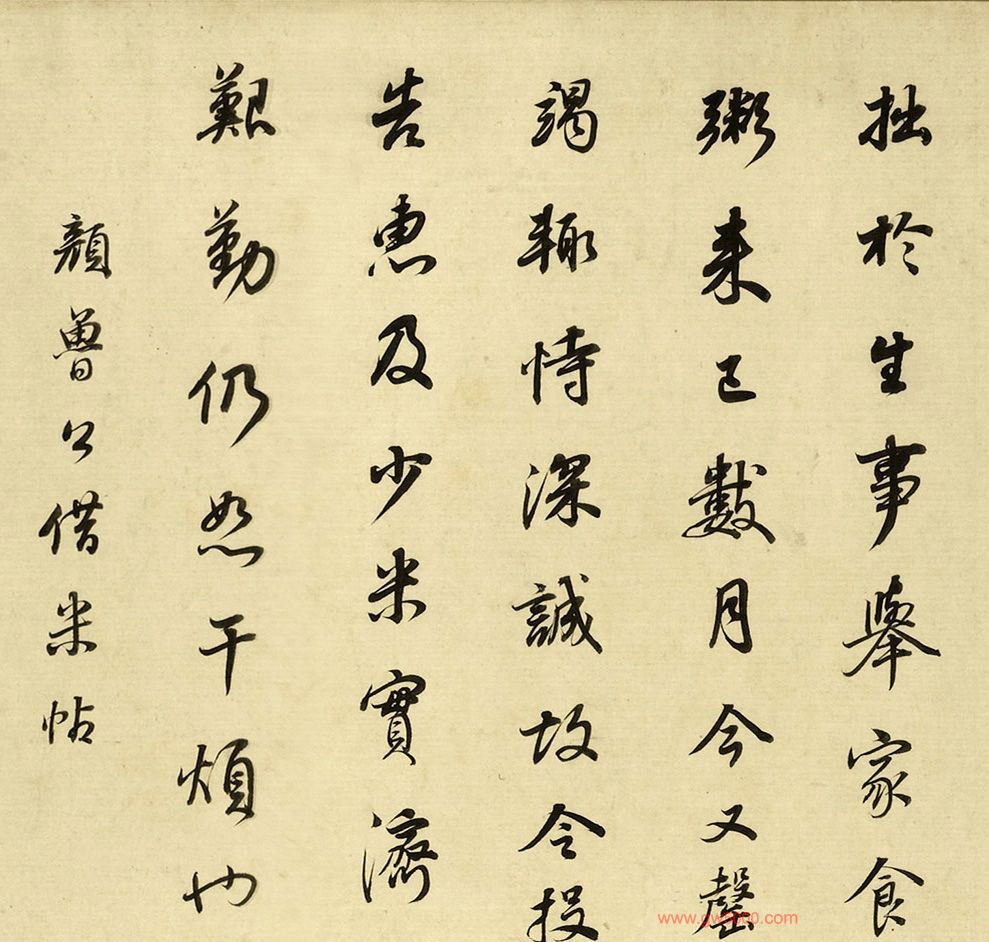 拙於生事舉家食
粥来已數月今又罄
竭輙恃深誠故令投
告惠及少米實濟
艱勤仍恕干煩也
顔魯公借米帖